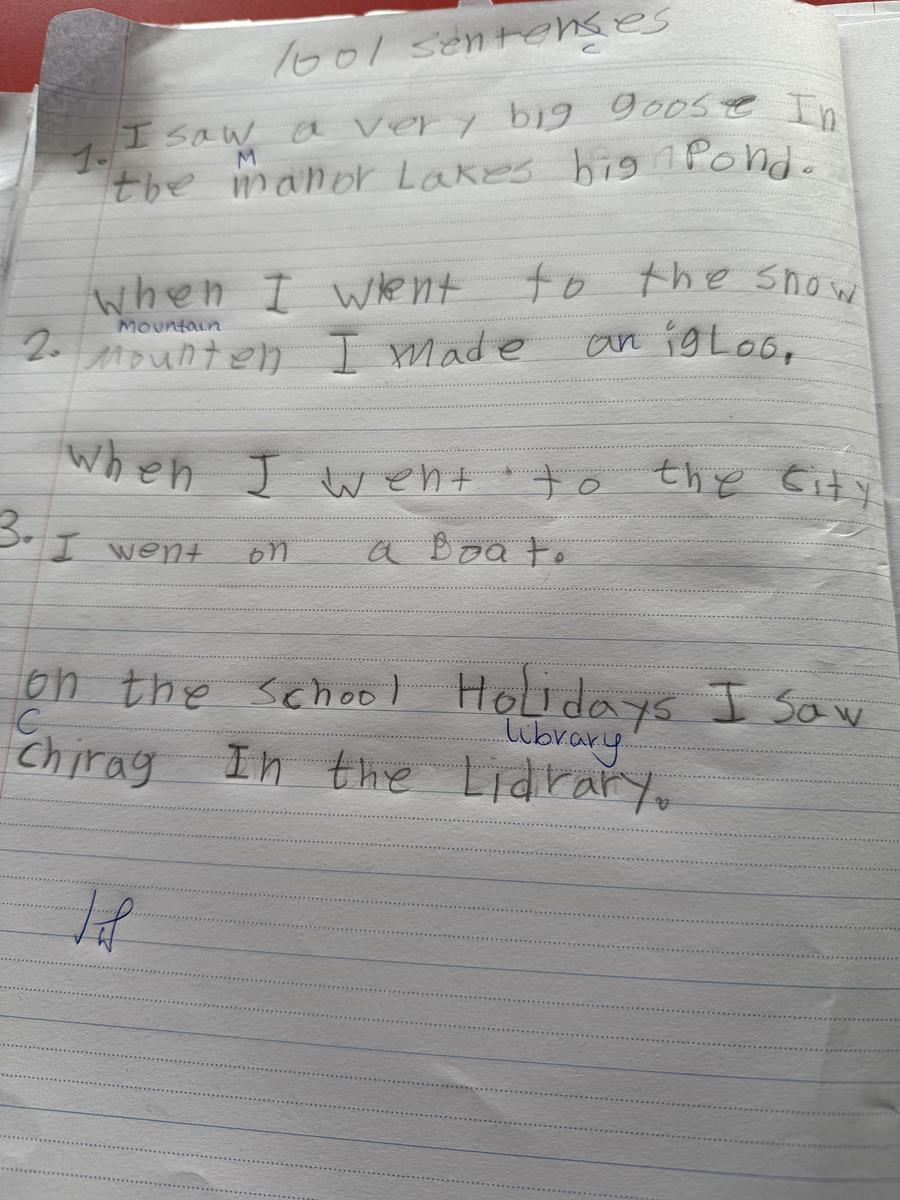 1001 sentenses
c
1. I saw a very big goose In
M
the manor Lakes big Pond.
When I went to the snow
mountain
2. mounten I made an igLoo.
When I went to the City
3. I went on a Boat.
on the school Holidays I saw
C library
chirag In the Lidrary.